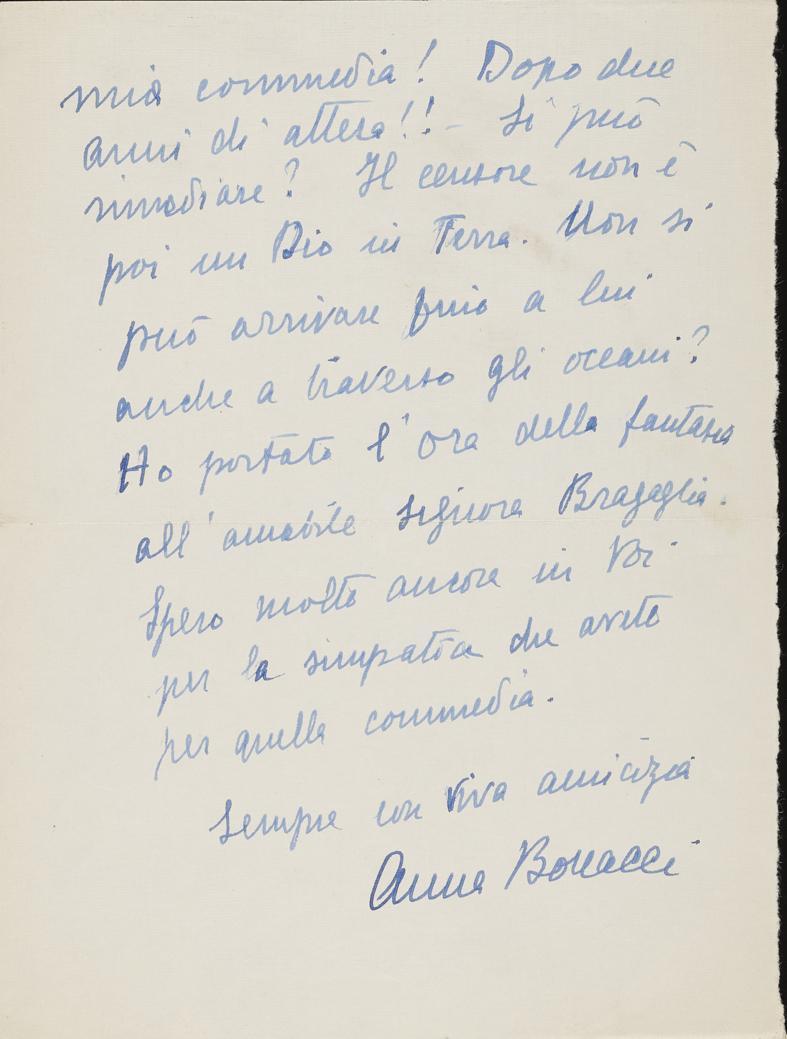 mia commedia! Dopo due
anni di attesa!! - Si può
rimediare? Il censore non è
poi un Dio in Terra. Non si
può arrivare fino a lui
anche a traverso gli oceani?
Ho portato l'Ora della fantasia
all'amabile signora Bragaglia.
Spero molto ancora in Voi
per la simpatia che avete
per quella commedia.
Sempre con viva amicizia
Anna Bonacci